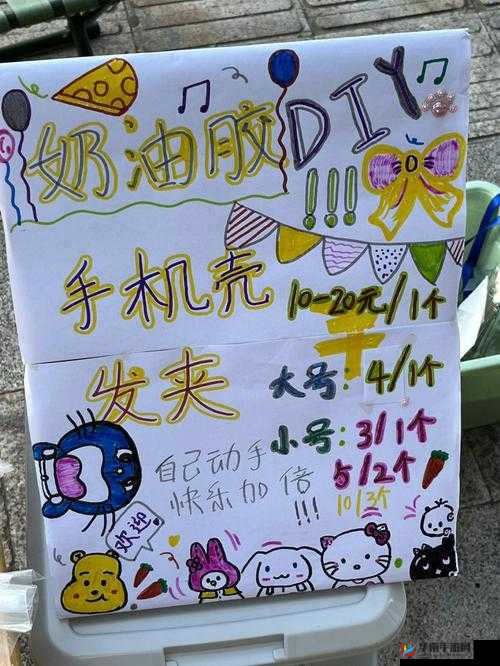 奶油胶DIY!!!
手机壳 10-20元/1个
发夹 大号：4/1个
小号：3/1个
5/2个
10/3个
自己动手
快乐加倍!!!
欢迎
华南手游网